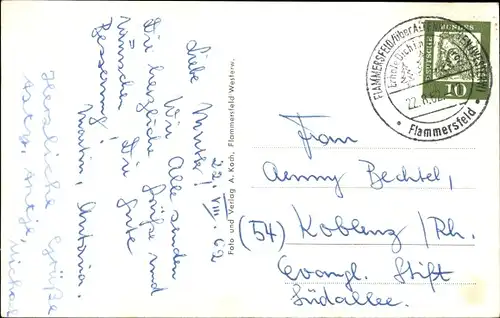 22. VIII. 62
Liebe Mutter!
Wir Alle senden
Dir herzliche Grüße und
wünschen Dir gute
Besserung!
Martin, Antonia.
Herzliche Grüße
Antje, Michael
Foto und Verlag A. Koch, Flammersfeld Westerw.
FLAMMERSFELD/über ALTENKIRCHEN (WESTERW)
Erhole Dich
22.8.62
Flammersfeld
DEUTSCHE BUNDESPOST
10
Frau
Aenny Bechtel,
(54) Koblenz/Rh.
Evangl. Stift
Südallee.